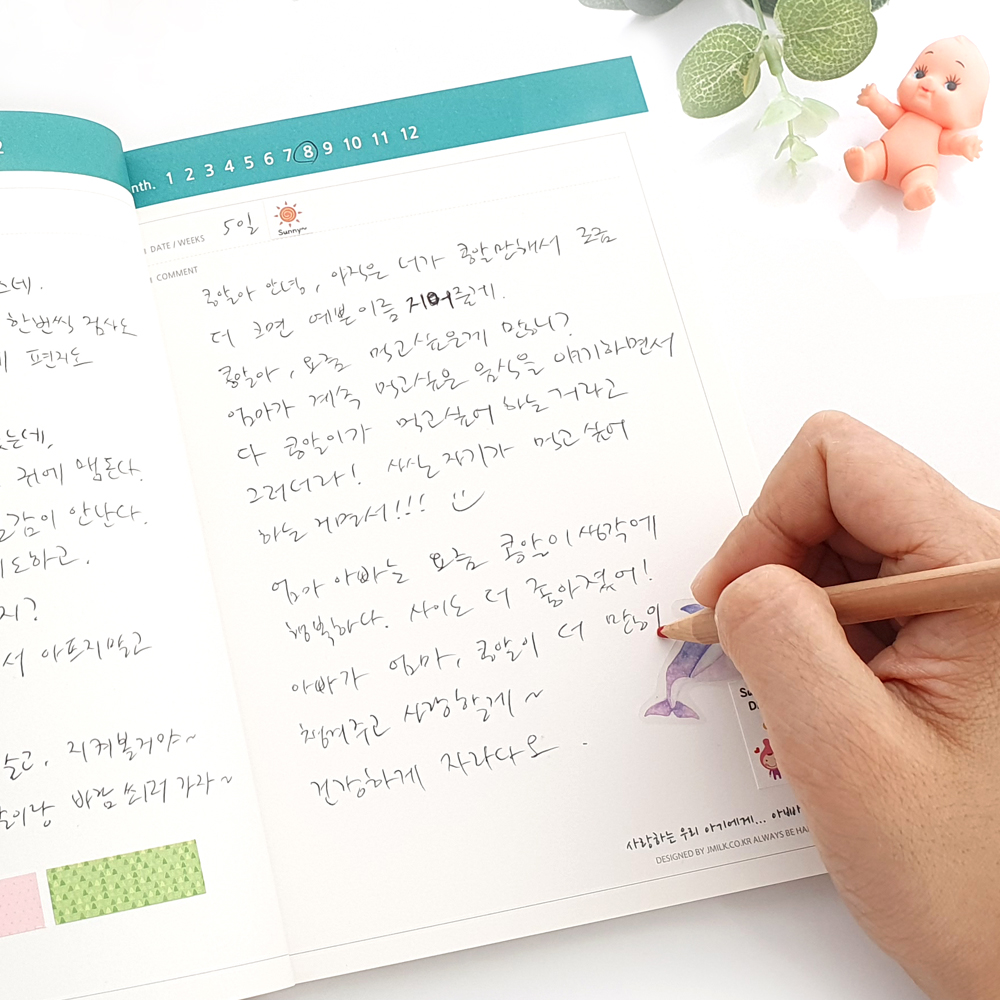 2
스데.
한번씩 검사도
편지도
는데,
귀에 맴돈다.
감이 안난다.
도하고.
지?
서 아프지말고
고, 지켜볼거야~
이랑 바람 쐬러 가자~
nth. 1 2 3 4 5 6 7 8 9 10 11 12
DATE / WEEKS 5일 Sunny~
COMMENT
콩알아 안녕, 아직은 너가 콩알만해서 조금
더 크면 예쁜이름 지어줄게.
콩알아, 요즘 먹고싶은게 많니?
엄마가 계속 먹고싶은 음식을 얘기하면서
다 콩알이가 먹고싶어 하는거라고
그러더라! 사실 자기가 먹고싶어
하는거면서!!!
엄마 아빠는 요즘 콩알이생각에
행복하다. 사이도 더 좋아졌어!
아빠가 엄마, 콩알이 더 많이
챙겨주고 사랑할게~
건강하게 자라다오.
사랑하는 우리 아기에게... 아빠
DESIGNED BY JMILK.CO.KR ALWAYS BE HA